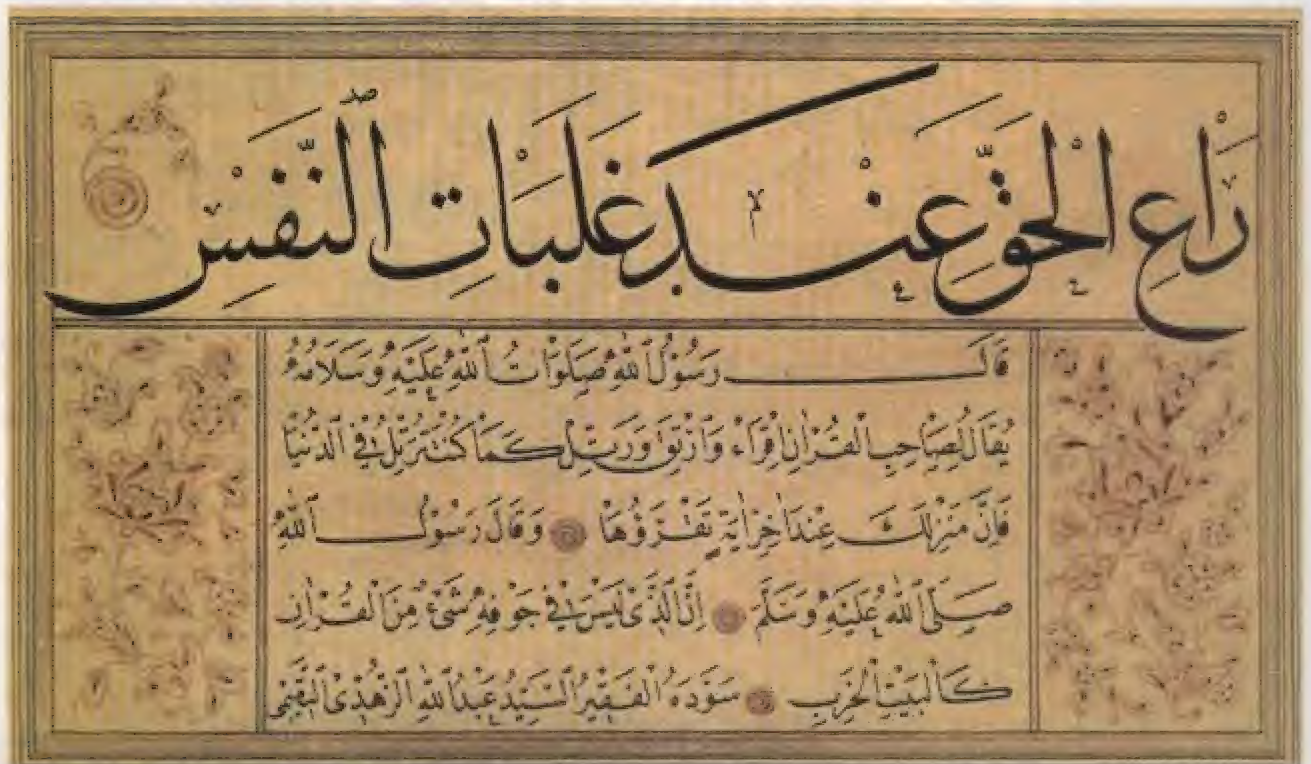 رَاعِ الْحَقَّ عِنْدَ غَلَبَاتِ النَّفَسِ
قَالَ رَسُوْلُ ٱللّٰهِ صَلَوَاتُ ٱللّٰهِ عَلَيْهِ وَسَلَامُهُ
يُقَالُ لِصَاحِبِ الْقُرْاٰنِ اِقْرَاءْ وَارْتَقِ وَرَتِّلْ كَمَا كُنْتَ تُرَتِّلُ فِي الدُّنْيَا
فَاِنَّ مَنْزِلَكَ عِنْدَ اٰخِرِ اٰيَةٍ تَقْرَؤُهَا وَقَالَ رَسُوْلُ ٱللّٰهِ
صَلَّى ٱللّٰهُ عَلَيْهِ وَسَلَّمَ اِنَّ الَّذِيْ لَيْسَ فِيْ جَوْفِهِ شَيْءٌ مِنَ الْقُرْاٰنِ
كَالْبَيْتِ الْخَرِبِ سَوَّدَهُ الْفَقِيْرُ السَّيِّدُ عَبْدُ ٱللّٰهِ الزُّهْدِيْ